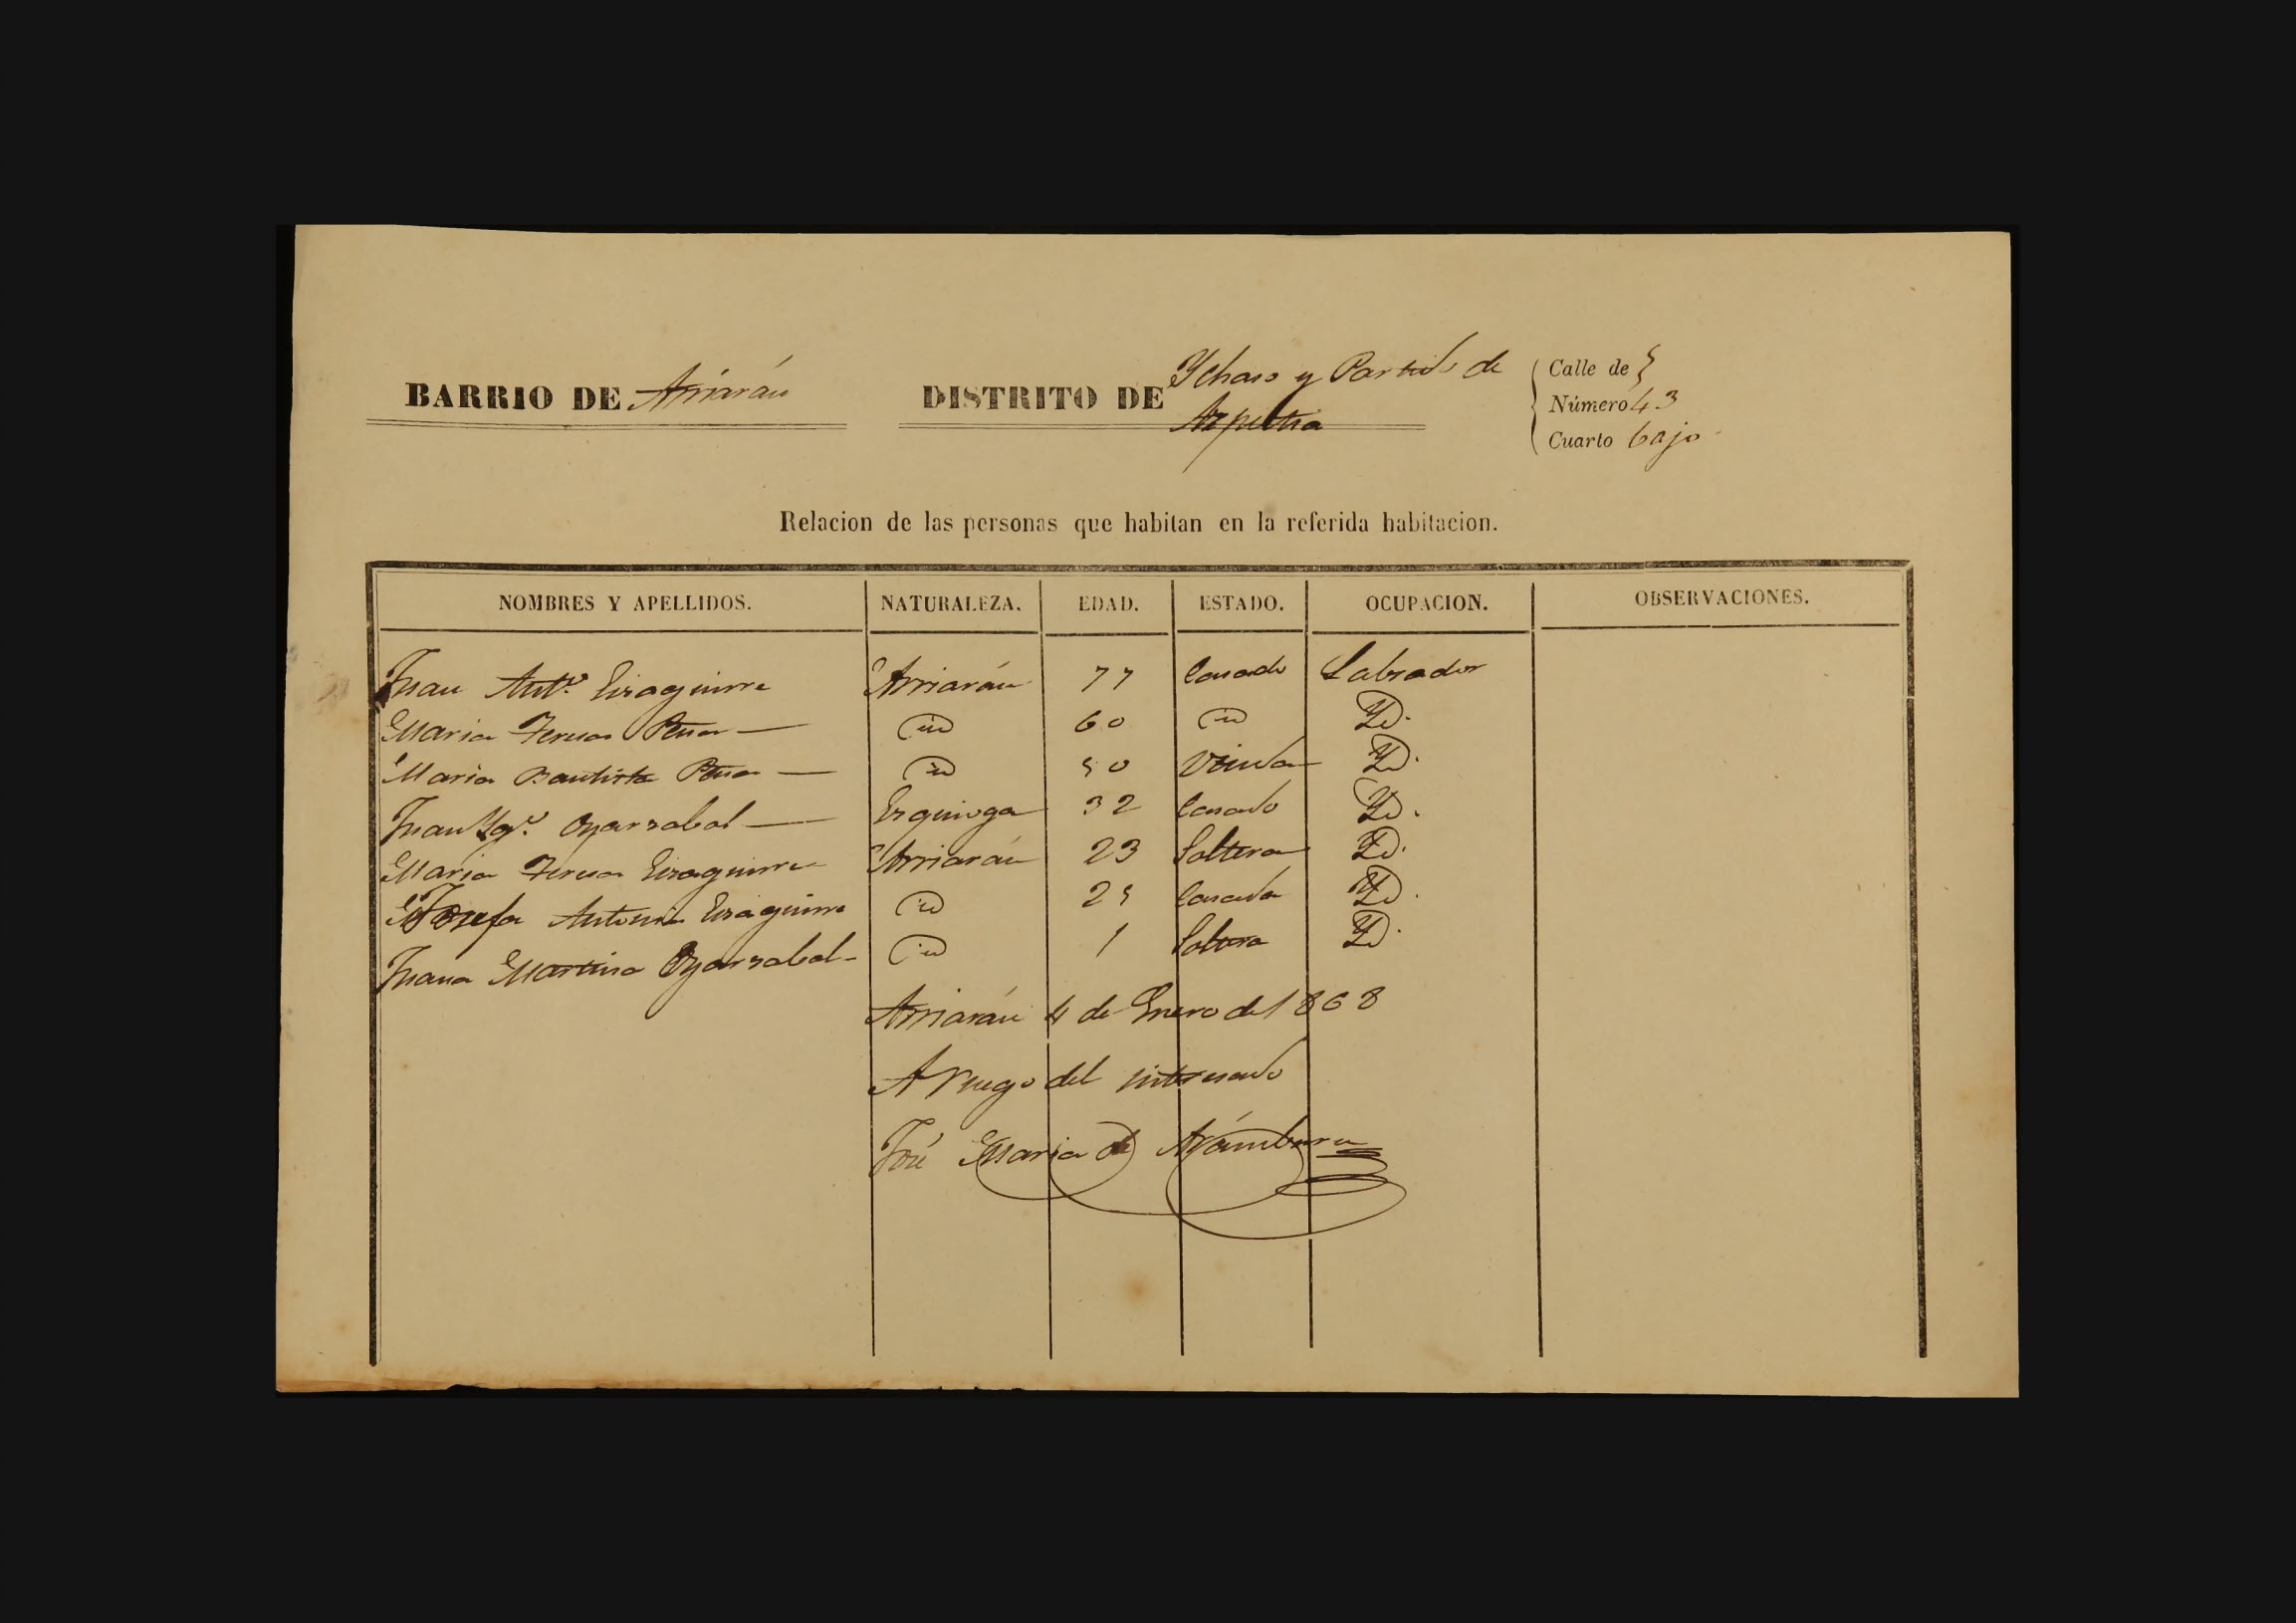 BARRIO DE Arriarán
DISTRITO DE Ychaso y Partido de
Azpeitia
Calle de
Número 43
Cuarto bajo
Relacion de las personas que habitan en la referida habitacion.
NOMBRES Y APELLIDOS. NATURALEZA. EDAD. ESTADO. OCUPACION. OBSERVACIONES.
Juan Antº. Eizaguirre Arriarán 77 Casado Labrador
Maria Teresa Pena id 60 id Yd.
Maria Bautista Pena id 50 Viuda Yd.
Juan Ygº. Oyarzabal Ezquioga 32 Casado Yd.
Maria Teresa Eizaguirre Arriarán 23 Soltera Yd.
Josefa Antonia Eizaguirre id 25 Casada Yd.
Juana Martina Oyarzabal id 1 Soltera Yd.
Arriarán 4 de Enero de 1868
A ruego del interesado
José Maria de Arámburu